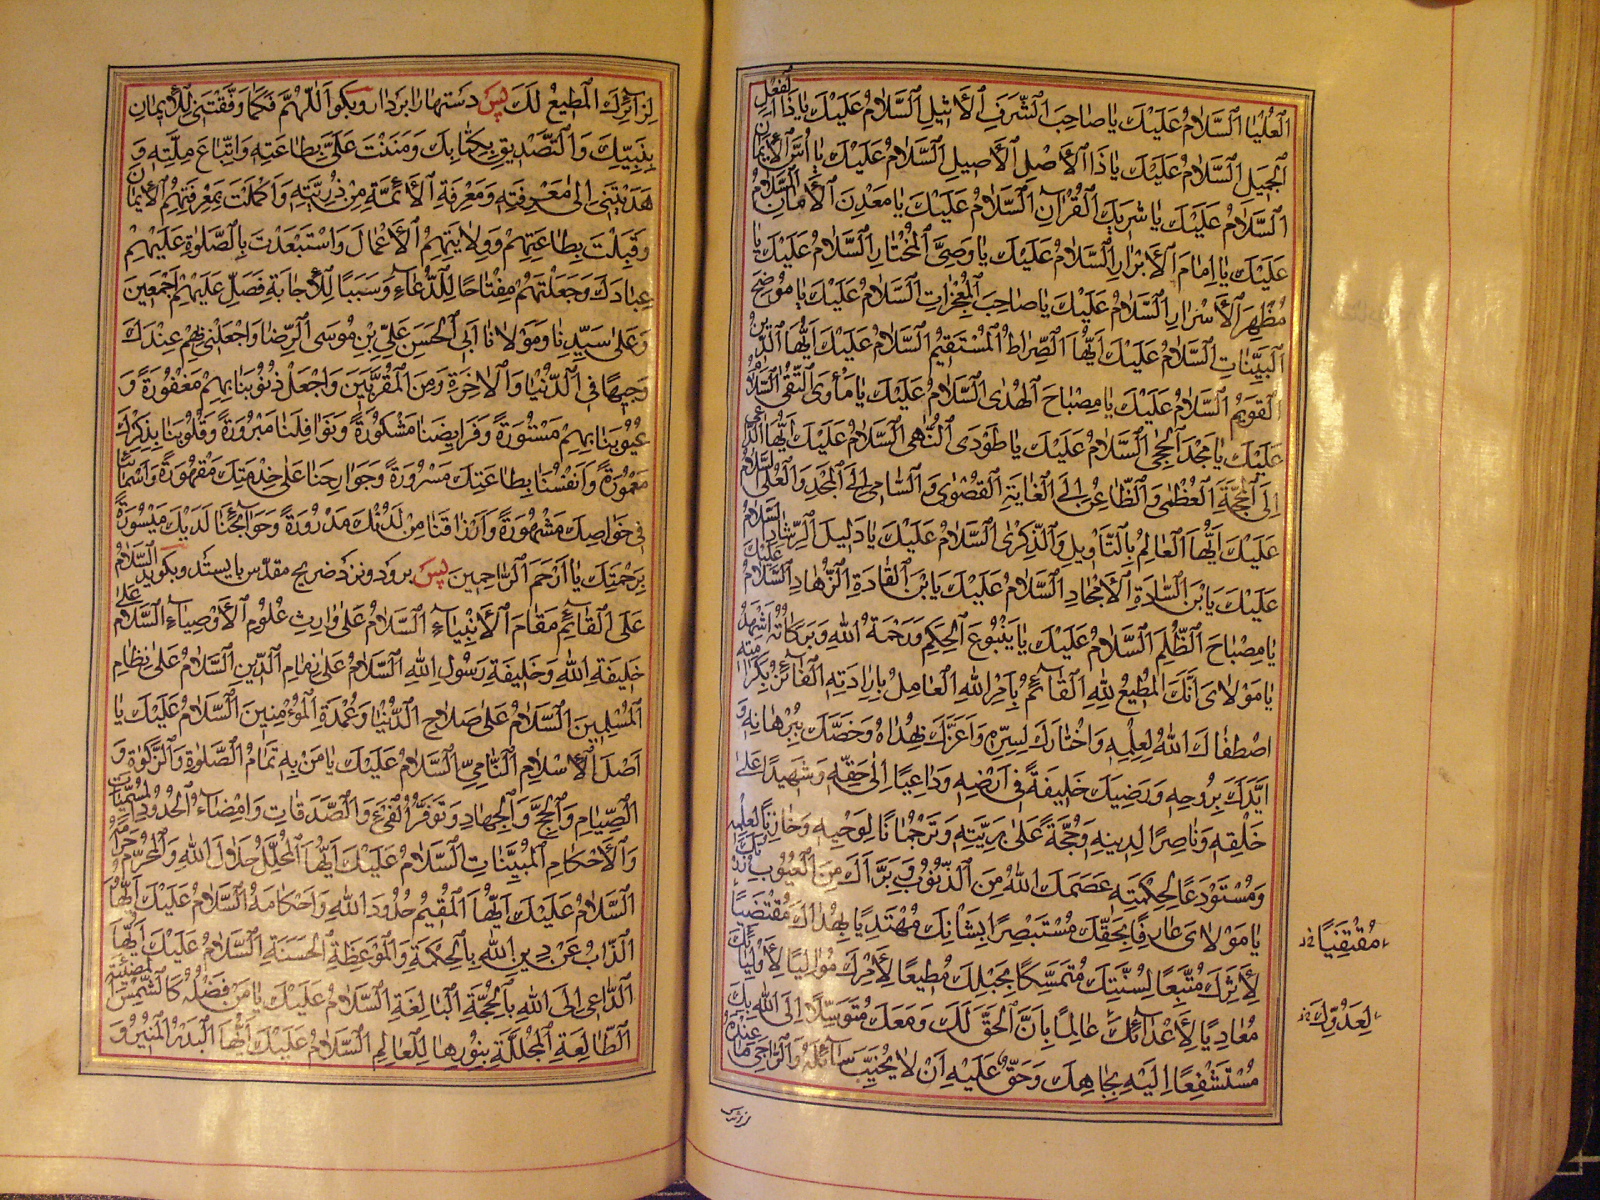 العُلْيَا اَلسَّلَامُ عَلَيْكَ يَا صَاحِبَ الشَّرَفِ الْأَثِيلِ اَلسَّلَامُ عَلَيْكَ يَا ذَا الْفِعْلِ
الْجَمِيلِ اَلسَّلَامُ عَلَيْكَ يَا ذَا الْأَصْلِ الْأَصِيلِ اَلسَّلَامُ عَلَيْكَ يَا الْأِيمَانِ
اَلسَّلَامُ عَلَيْكَ يَا شَرِيكَ الْقُرْآنِ اَلسَّلَامُ عَلَيْكَ يَا مَعْدِنَ الْأَمَانِ اَلسَّلَامُ
عَلَيْكَ يَا اِمَامَ الْأَبْرَارِ اَلسَّلَامُ عَلَيْكَ يَا وَصِيَّ الْمُخْتَارِ اَلسَّلَامُ عَلَيْكَ يَا
مُظْهِرَ الْأَسْرَارِ اَلسَّلَامُ عَلَيْكَ يَا صَاحِبَ الْمُعْجِزَاتِ اَلسَّلَامُ عَلَيْكَ يَا مُوضِحَ
الْبَيِّنَاتِ اَلسَّلَامُ عَلَيْكَ اَيُّهَا الصِّرَاطُ الْمُسْتَقِيمُ اَلسَّلَامُ عَلَيْكَ اَيُّهَا الدِّينُ
الْقَوِيمُ اَلسَّلَامُ عَلَيْكَ يَا مِصْبَاحَ الْهُدَى اَلسَّلَامُ عَلَيْكَ يَا مَأْوَى التُّقَى اَلسَّلَامُ
عَلَيْكَ يَا مَجْدَ الْحِجَى اَلسَّلَامُ عَلَيْكَ يَا طَوْدَى النُّهَى اَلسَّلَامُ عَلَيْكَ اَيُّهَا الدَّاعِي
اِلَى الْمَحَجَّةِ الْعُظْمَى وَالظَّاعِنُ اِلَى الْغَايَةِ الْقُصْوَى وَالسَّامِي اِلَى الْمَجْدِ وَالْعُلَى اَلسَّلَامُ
عَلَيْكَ اَيُّهَا الْعَالِمُ بِالتَّأْوِيلِ وَالذِّكْرَى اَلسَّلَامُ عَلَيْكَ يَا دَلِيلَ الرَّشَادِ اَلسَّلَامُ
عَلَيْكَ يَا بْنَ السَّادَةِ الْأَمْجَادِ اَلسَّلَامُ عَلَيْكَ يَا بْنَ الْقَادَةِ الزُّهَادِ اَلسَّلَامُ عَلَيْكَ
يَا مِصْبَاحَ الظُّلَمِ اَلسَّلَامُ عَلَيْكَ يَا يَنْبُوعَ الْحِكَمِ وَرَحْمَةُ اللهِ وَبَرَكَاتُهُ اَشْهَدُ
يَا مَوْلَايَ اَنَّكَ الْمُطِيعُ لِلّٰهِ الْقَائِمُ بِاَمْرِ اللهِ الْعَامِلُ بِاِرَادَتِهِ الْفَائِزُ بِكَرَامَتِهِ
اصْطَفَاكَ اللهُ لِعِلْمِهِ وَاخْتَارَكَ لِسِرِّهِ وَاَعَزَّكَ بِهُدَاهُ وَخَصَّكَ بِبُرْهَانِهِ وَ
اَيَّدَكَ بِرُوحِهِ وَرَضِيَكَ خَلِيفَةً فِي اَرْضِهِ وَدَاعِيًا اِلَى حَقِّهِ وَشَهِيدًا عَلَى
خَلْقِهِ وَنَاصِرًا لِدِينِهِ وَحُجَّةً عَلَى بَرِيَّتِهِ وَتَرْجُمَانًا لِوَحْيِهِ وَخَازِنًا لِعِلْمِهِ
وَمُسْتَوْدَعًا لِحِكْمَتِهِ عَصَمَكَ اللهُ مِنَ الذُّنُوبِ وَبَرَّأَكَ مِنَ الْعُيُوبِ زُرْتُكَ
يَا مَوْلَايَ عَارِفًا بِحَقِّكَ مُسْتَبْصِرًا بِشَأْنِكَ مُهْتَدِيًا بِهُدَاكَ مُقْتَضِيًا
لِأَثَرِكَ مُتَّبِعًا لِسُنَّتِكَ مُتَمَسِّكًا بِحَبْلِكَ مُطِيعًا لِأَمْرِكَ مُوَالِيًا لِأَوْلِيَائِكَ
مُعَادِيًا لِأَعْدَائِكَ عَالِمًا بِاَنَّ الْحَقَّ لَكَ وَمَعَكَ مُتَوَسِّلًا اِلَى اللهِ بِكَ
مُسْتَشْفِعًا اِلَيْهِ بِجَاهِكَ وَحَقٌّ عَلَيْهِ اَنْ لَا يُخَيِّبَ سَائِلَهُ وَالرَّاجِيَ مَا عِنْدَهُ
مُقْتَفِيًا
لِعَدُوِّكَ
لِزَائِرِكَ الْمُطِيعُ لَكَ پس دستها را بردار و بگو اَللّٰهُمَّ فَكَمَا وَفَّقْتَنِي لِلْأِيمَانِ
بِنَبِيِّكَ وَالتَّصْدِيقِ بِكِتَابِكَ وَمَنَنْتَ عَلَيَّ بِطَاعَتِهِ وَاتِّبَاعِ مِلَّتِهِ وَ
هَدَيْتَنِي اِلَى مَعْرِفَتِهِ وَمَعْرِفَةِ الْأَئِمَّةِ مِنْ ذُرِّيَّتِهِ وَاَكْمَلْتَ بِمَعْرِفَتِهِمُ الْأِيمَانَ
وَقَبِلْتَ بِطَاعَتِهِمْ وَوِلَايَتِهِمُ الْأَعْمَالَ وَاسْتَعْبَدْتَ بِالصَّلٰوةِ عَلَيْهِمْ
عِبَادَكَ وَجَعَلْتَهُمْ مِفْتَاحًا لِلدُّعَاءِ وَسَبَبًا لِلْأِجَابَةِ فَصَلِّ عَلَيْهِمْ اَجْمَعِينَ
وَعَلَى سَيِّدِنَا وَمَوْلَانَا اَبِي الْحَسَنِ عَلِيِّ بْنِ مُوسَى الرِّضَا وَاجْعَلْنِي بِهِمْ عِنْدَكَ
وَجِيهًا فِي الدُّنْيَا وَالْآخِرَةِ وَمِنَ الْمُقَرَّبِينَ وَاجْعَلْ ذُنُوبَنَا بِهِمْ مَغْفُورَةً وَ
عُيُوبَنَا بِهِمْ مَسْتُورَةً وَفَرَايِضَنَا مَشْكُورَةً وَنَوَافِلَنَا مَبْرُورَةً وَقُلُوبَنَا بِذِكْرِكَ
مَعْمُورَةً وَاَنْفُسَنَا بِطَاعَتِكَ مَسْرُورَةً وَجَوَارِحَنَا عَلَى خِدْمَتِكَ مَقْهُورَةً وَاَسْمَاءَنَا
فِي خَوَاصِّكَ مَشْهُورَةً وَاَرْزَاقَنَا مِنْ لَدُنْكَ مَدْرُورَةً وَحَوَائِجَنَا لَدَيْكَ مَيْسُورَةً
بِرَحْمَتِكَ يَا اَرْحَمَ الرَّاحِمِينَ پس برو و نزد ضریح مقدّس بایستد و بگوید اَلسَّلَامُ
عَلَى الْقَائِمِ مَقَامَ الْأَنْبِيَاءِ اَلسَّلَامُ عَلَى وَارِثِ عُلُومِ الْأَوْصِيَاءِ اَلسَّلَامُ عَلَى
خَلِيفَةِ اللهِ وَخَلِيفَةِ رَسُولِ اللهِ اَلسَّلَامُ عَلَى زِمَامِ الدِّينِ اَلسَّلَامُ عَلَى نِظَامِ
الْمُسْلِمِينَ اَلسَّلَامُ عَلَى صَلَاحِ الدُّنْيَا وَعُمْدَةِ الْمُؤْمِنِينَ اَلسَّلَامُ عَلَيْكَ يَا
اَصْلَ الْأِسْلَامِ النَّامِي اَلسَّلَامُ عَلَيْكَ يَا مَنْ بِهِ تَمَامُ الصَّلٰوةِ وَالزَّكٰوةِ وَ
الصِّيَامِ وَالْحَجِّ وَالْجِهَادِ وَتَوَفُّرُ الْفَيْءِ وَالصَّدَقَاتِ وَاِمْضَاءُ الْحُدُودِ
وَالْأَحْكَامِ الْمُبَيَّنَاتِ اَلسَّلَامُ عَلَيْكَ اَيُّهَا الْمُحَلِّلُ حَلَالَ اللهِ وَالْمُحَرِّمُ حَرَامَهُ
اَلسَّلَامُ عَلَيْكَ اَيُّهَا الْمُقِيمُ حُدُودَ اللهِ وَاَحْكَامَهُ اَلسَّلَامُ عَلَيْكَ اَيُّهَا
الذَّابُّ عَنْ دِينِ اللهِ بِالْحِكْمَةِ وَالْمَوْعِظَةِ الْحَسَنَةِ اَلسَّلَامُ عَلَيْكَ اَيُّهَا
الدَّاعِي اِلَى اللهِ بِالْحُجَّةِ الْبَالِغَةِ اَلسَّلَامُ عَلَيْكَ يَا مَنْ فَضْلُهُ كَالشَّمْسِ الْمُضِيئَةِ
الطَّالِعَةِ الْمُجَلَّلَةِ بِنُورِهَا لِلْعَالَمِ اَلسَّلَامُ عَلَيْكَ اَيُّهَا الْبَدْرُ الْمُنِيرُ وَ